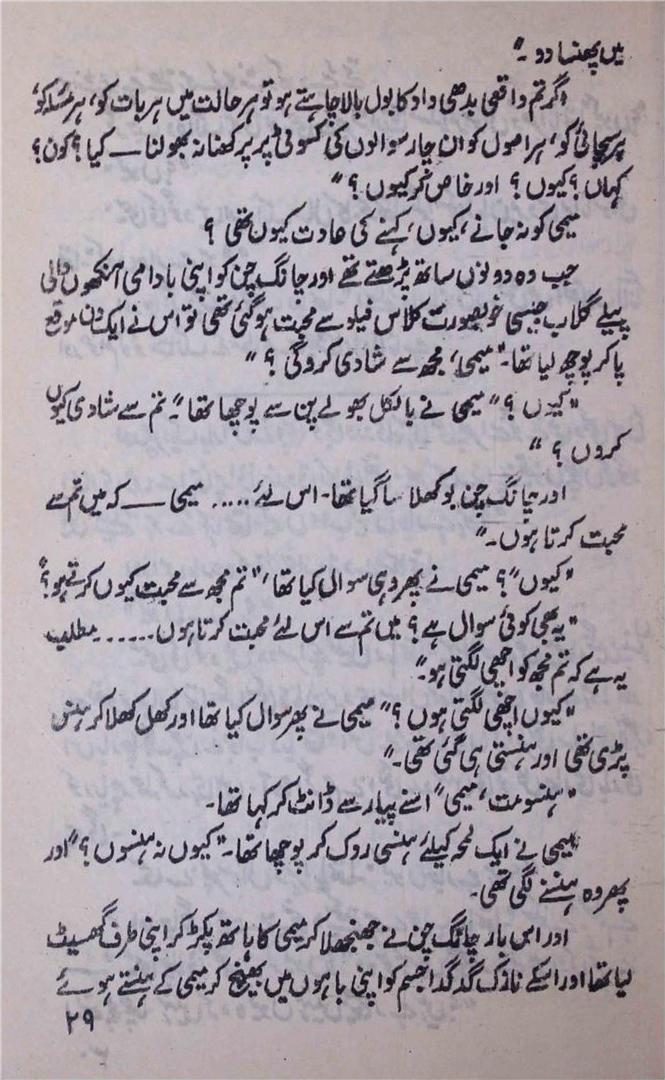 میں پھنسا دو ۔"
"اگر تم واقعی بدھی واد کا بول بالا چاہتے ہو تو ہر حالت میں ہر بات کو، ہر مسئلہ کو،
ہر سچائی کو، ہر اصول کو ان چار سوالوں کی کسوٹی پر پرکھنا نہ بھولنا — کیا؟ کون؟
کہاں؟ کیوں؟ اور خاص کر کیوں؟"
میمی کو نہ جانے، کیوں، کہنے کی عادت کیوں تھی ؟
جب وہ دونوں ساتھ پڑھتے تھے اور چانگ چن کو اپنی بادامی آنکھوں والی
پیلے گلاب جیسی خوبصورت کلاس فیلو سے محبت ہو گئی تھی تو اس نے ایک دن موقع
پا کر پوچھ لیا تھا۔ "میمی، مجھ سے شادی کرو گی ؟"
"کیوں ؟" میمی نے بالکل بھولے پن سے پوچھا تھا "۔ تم سے شادی کیوں
کروں ؟"
اور چانگ چن بوکھلا سا گیا تھا۔ اس لئے ..... میمی — کہ میں تم سے
محبت کرتا ہوں۔"
"کیوں"؟ میمی نے پھر وہی سوال کیا تھا، "تم مجھ سے محبت کیوں کرتے ہو؟"
"یہ بھی کوئی سوال ہے؟ میں تم سے اس لئے محبت کرتا ہوں ...... مطلب
یہ ہے کہ تم مجھ کو اچھی لگتی ہو۔"
"کیوں اچھی لگتی ہوں ؟" میمی نے پھر سوال کیا تھا اور کھل کھلا کر ہنس
پڑی تھی اور ہنستی ہی گئی تھی۔"
"ہنسو مت، میمی" اسنے پیار سے ڈانٹ کر کہا تھا۔
میمی نے ایک لمحہ کیلئے ہنسی روک کر پوچھا تھا۔ "کیوں نہ ہنسوں ؟" اور
پھر وہ ہنسنے لگی تھی۔
اور اس بار چانگ چن نے جھنجھلا کر میمی کا ہاتھ پکڑ کر اپنی طرف گھسیٹ
لیا تھا اور اسکے نازک گدگدا جسم کو اپنی باہوں میں بھینچ کر میمی کے ہنستے ہوئے
۲۹